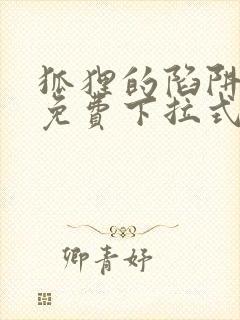 狐狸的陷阱
免費下拉式
卿青妤